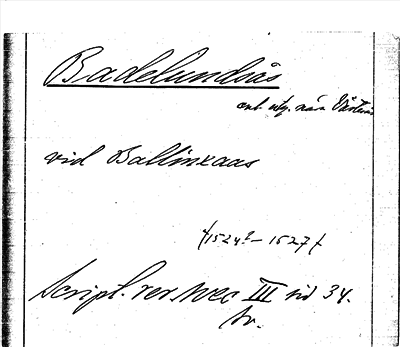 Badelundsås
enl. utg. nära Västerås
vid Ballinxaas
(1524?–1527)
Script. rer. svec III sid 34.